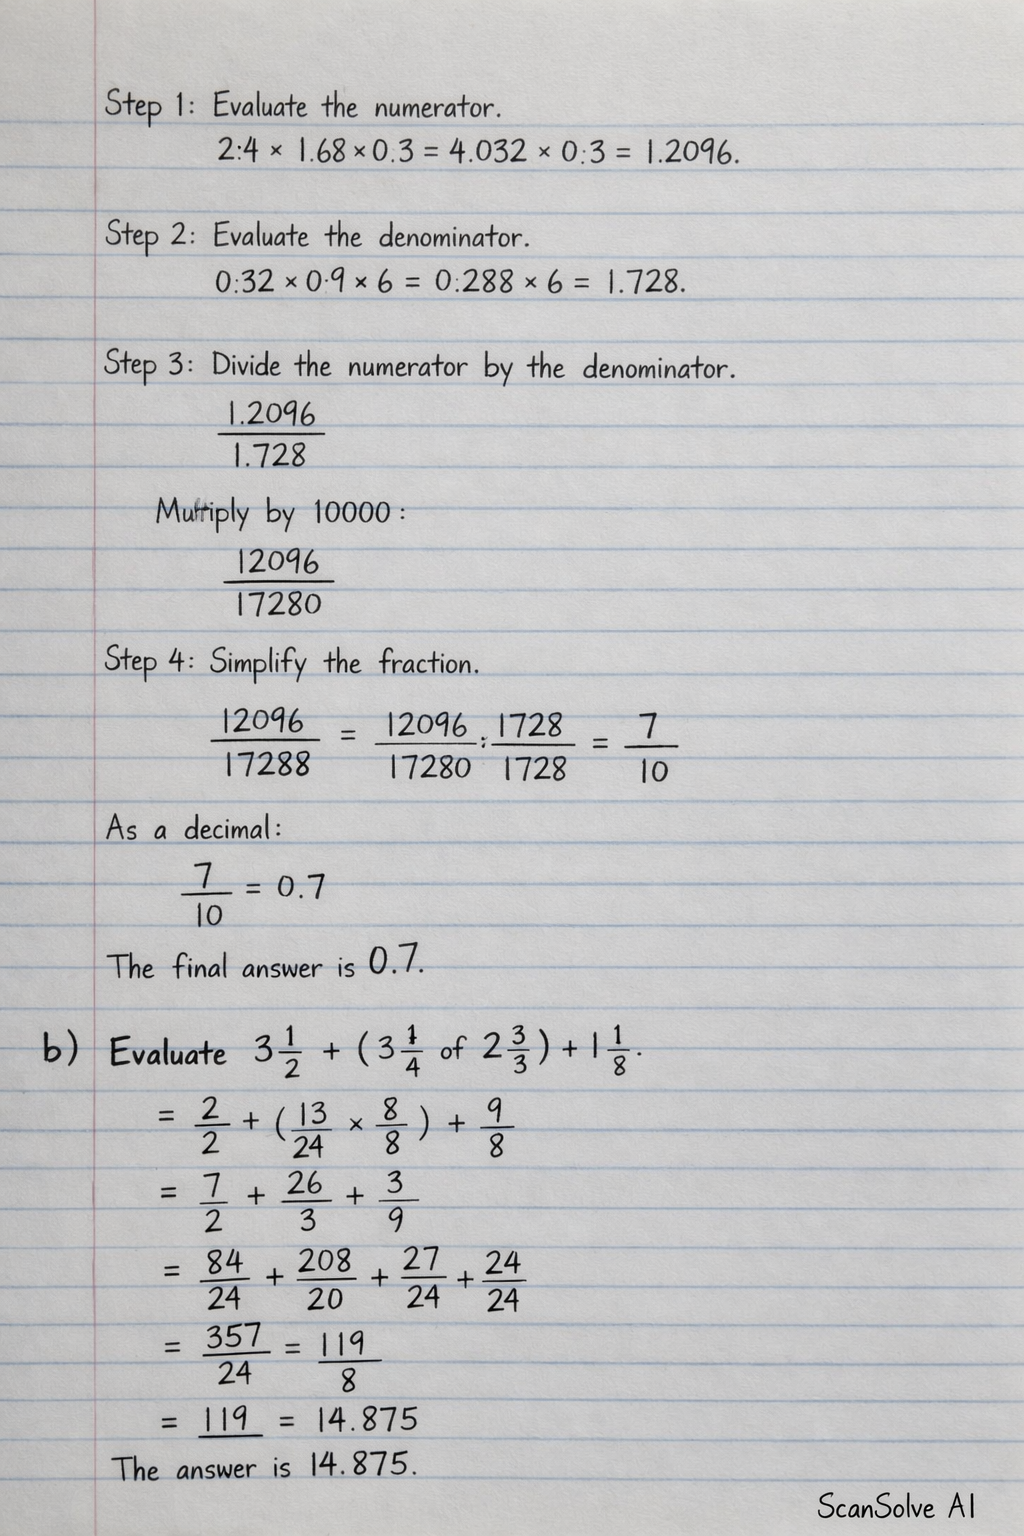 Step 1: Evaluate the numerator.
2:4 × 1.68 × 0.3 = 4.032 × 0:3 = 1.2096.
Step 2: Evaluate the denominator.
0:32 × 0·9 × 6 = 0:288 × 6 = 1.728.
Step 3: Divide the numerator by the denominator.
1.2096
1.728
Multiply by 10000:
12096
17280
Step 4: Simplify the fraction.
12096/17288 = 12096/17280 : 1728/1728 = 7/10
As a decimal:
7/10 = 0.7
The final answer is 0.7.
b) Evaluate 3 1/2 + (3 1/4 of 2 3/3) + 1 1/8.
= 2/2 + (13/24 × 8/8) + 9/8
= 7/2 + 26/3 + 3/9
= 84/24 + 208/20 + 27/24 + 24/24
= 357/24 = 119/8
= 119 = 14.875
The answer is 14.875.
ScanSolve AI